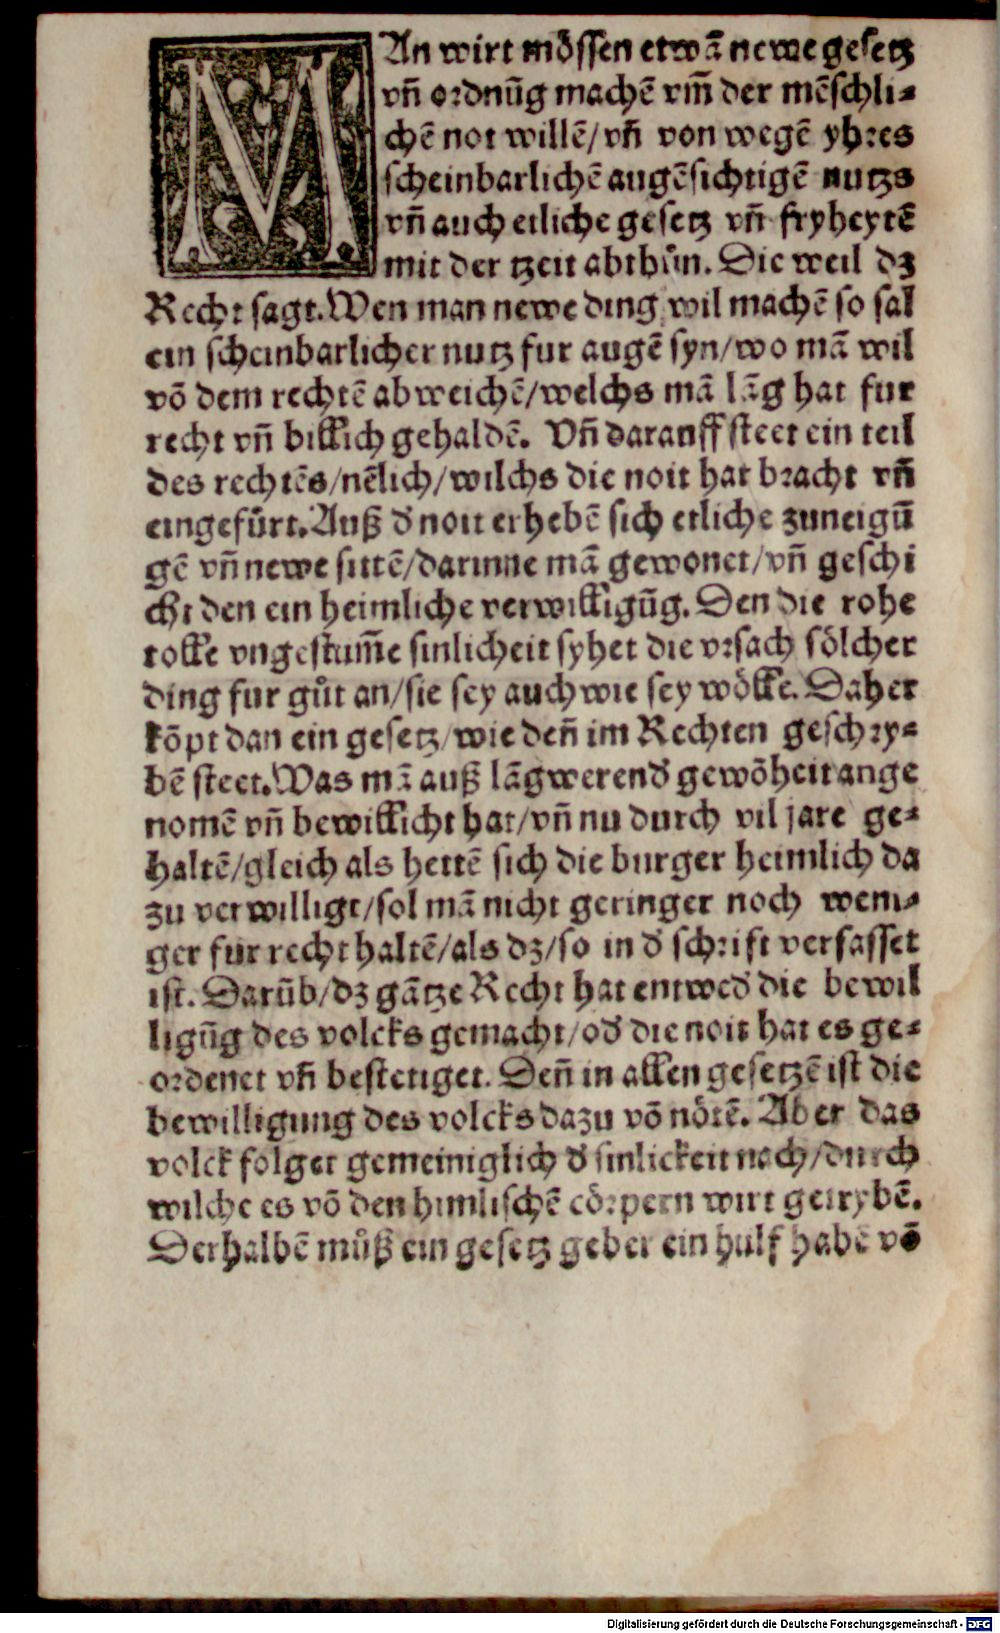 MAn wirt mössen etwā newe gesetz
vn̄ ordnūg machē vm̄ der mēschli-
chē not willē/vn̄ von wegē yhres
scheinbarlichē augēsichtigē nutzs
vn̄ auch etliche gesetz vn̄ fryheytē
mit der tzeit abthůn. Die weil dz
Recht sagt. Wen man newe ding wil machē so sal
ein scheinbarlicher nutz fur augē syn/wo mā wil
vō dem rechtē abweichē/welchs mā lāg hat fur
recht vn̄ billich gehaldē. Vn̄ darauff steet ein teil
des rechtēs/nēlich/wilchs die noit hat bracht vn̄
eingefürt. Auß d noit erhebē sich etliche zuneigū
gē vn̄ newe sittē/darinne mā gewonet/vn̄ geschi
cht den ein heimliche verwilligūg. Den die rohe
tolle vngestum̄e sinlicheit syhet die vrsach sölcher
ding fur gůt an/sie sey auch wie sey wölle. Daher
kōpt dan ein gesetz/wie den̄ im Rechten geschry-
bē steet. Was mā auß lāgwerend gewōheit ange
nomē vn̄ bewillicht hat/vn̄ nu durch vil jare ge-
haltē/gleich als hettē sich die burger heimlich da
zu verwilligt/sol mā nicht geringer noch weni-
ger fur recht haltē/als dz/so in d schrift verfasset
ist. Darūb/dz gātze Recht hat entwed die bewil
ligūg des volcks gemacht/od die noit hat es ge-
ordenet vn̄ bestetiget. Den̄ in allen gesetzē ist die
bewilligung des volcks dazu vō nötē. Aber das
volck folget gemeiniglich d sinlickeit nach/durch
wilche es vō den himlischē cörpern wirt getrybē.
Derhalbē můß ein gesetz geber ein hulf habē vō
Digitalisierung gefördert durch die Deutsche Forschungsgemeinschaft - DFG